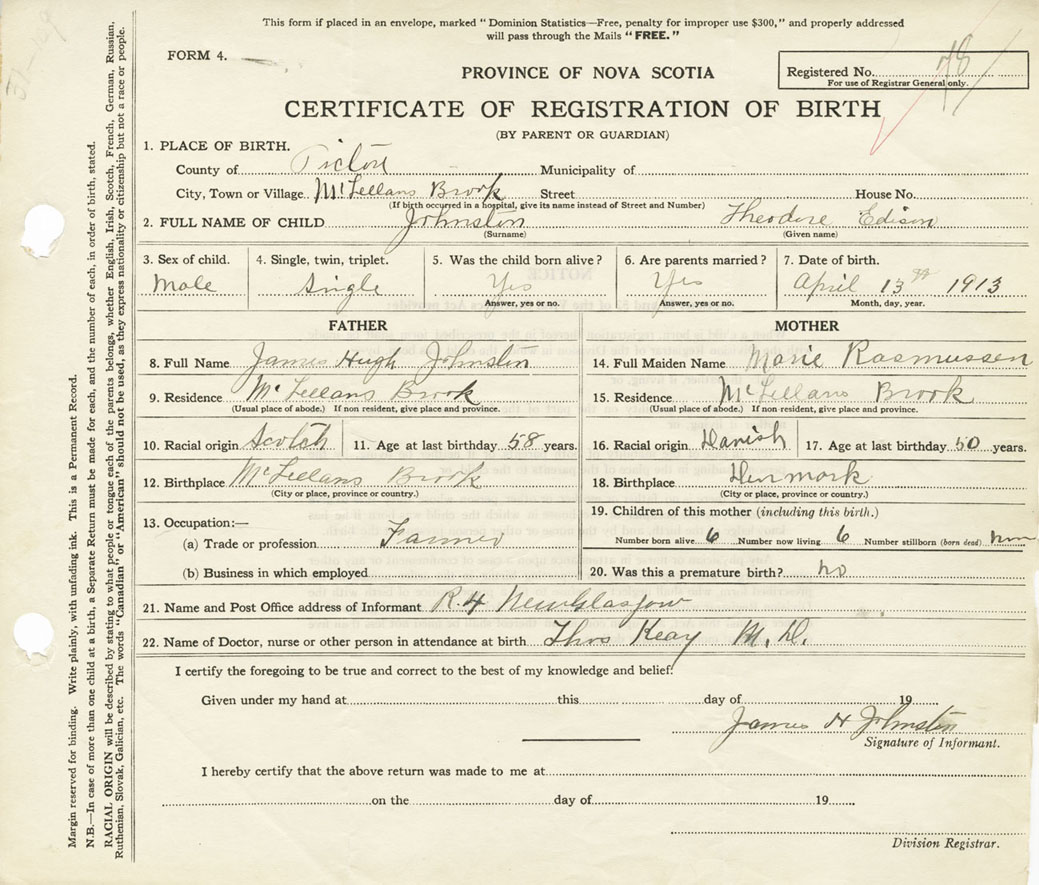 This form if placed in an envelope, marked "Dominion Statistics—Free, penalty for improper use $300," and properly addressed
will pass through the Mails "FREE."
FORM 4.
PROVINCE OF NOVA SCOTIA
Registered No. 78
For use of Registrar General only.
CERTIFICATE OF REGISTRATION OF BIRTH
(BY PARENT OR GUARDIAN)
1. PLACE OF BIRTH.
County of Pictou Municipality of
City, Town or Village McLellans Brook Street House No.
(If birth occurred in a hospital, give its name instead of Street and Number)
2. FULL NAME OF CHILD Johnston Theodore Edison
(Surname) (Given name)
3. Sex of child. 4. Single, twin, triplet. 5. Was the child born alive? 6. Are parents married? 7. Date of birth.
Male Single Yes Yes April 13th 1913
Answer, yes or no. Answer, yes or no. Month, day, year.
FATHER MOTHER
8. Full Name James Hugh Johnston 14. Full Maiden Name Marie Rasmussen
9. Residence McLellans Brook 15. Residence McLellans Brook
(Usual place of abode.) If non resident, give place and province. (Usual place of abode.) If non resident, give place and province.
10. Racial origin Scotch 11. Age at last birthday 58 years. 16. Racial origin Danish 17. Age at last birthday 50 years.
12. Birthplace McLellans Brook 18. Birthplace Denmark
(City or place, province or country.) (City or place, province or country.)
13. Occupation:— 19. Children of this mother (including this birth.)
(a) Trade or profession Farmer Number born alive 6 Number now living 6 Number stillborn (born dead)
(b) Business in which employed 20. Was this a premature birth? no
21. Name and Post Office address of Informant R.4 New Glasgow
22. Name of Doctor, nurse or other person in attendance at birth Thos Keay M.D.
I certify the foregoing to be true and correct to the best of my knowledge and belief.
Given under my hand at this day of 19
James H Johnston
Signature of Informant.
I hereby certify that the above return was made to me at
on the day of 19
Division Registrar.
Margin reserved for binding. Write plainly, with unfading ink. This is a Permanent Record.
N.B.—In case of more than one child at a birth, a Separate Return must be made for each, and the number of each, in order of birth, stated.
RACIAL ORIGIN will be described by stating to what people or tongue each of the parents belongs, whether English, Irish, Scotch, French, German, Russian,
Ruthenian, Slovak, Galician, etc. The words "Canadian" or "American" should not be used, as they express nationality or citizenship but not a race or people.